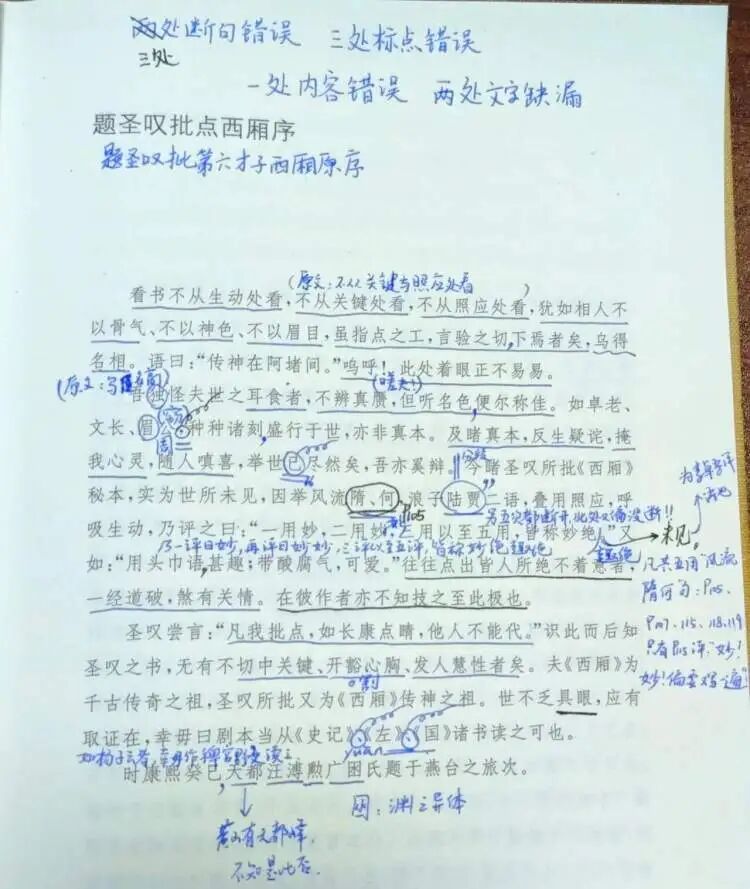 两处断句错误 三处标点错误
三处
一处内容错误 两处文字缺漏
题圣叹批点西厢序
题圣叹批第六才子西厢原序
(原文:不从关键与照应处看)
看书不从生动处看,不从关键处看,不从照应处看,犹如相人不
以骨气、不以神色、不以眉目,虽指点之工,言验之切下焉者矣,乌得
名相。语曰:“传神在阿堵间。”呜呼!此处着眼正不易易。
吾独怪夫世之耳食者,不辨真赝,但听名色便尔称佳。如卓老、
文长、眉公种种诸刻盛行于世,亦非真本。及睹真本,反生疑诧,掩
我心灵,随人嗔喜,举世已尽然矣,吾亦奚辩。今睹圣叹所批《西厢》
秘本,实为世所未见,因举风流隋、何,浪子陆贾二语,叠用照应,呼
P105
另五次都断开,此处又偏没断!!
吸生动,乃评之曰:“一用妙,二用妙,三用以至五用,皆称妙绝”,又
乃一评曰妙,再评曰妙妙,三评以至五评,皆称妙绝趣绝
趣绝
未见
如:“用头巾语甚趣;带酸腐气,可爱。”往往点出皆人所绝不着意者,
一经道破,煞有关情。在彼作者亦不知技之至此极也。
凡共五用“风流
隋何”句:P105、
P107、115、118、119
只有P115评“妙!
妙!偏要鸡遍”
圣叹尝言:“凡我批点,如长康点睛,他人不能代。”识此而后知
圣叹之书,无有不切中关键、开豁心胸、发人慧性者矣。夫《西厢》为
千古传奇之祖,圣叹所批又为《西厢》传神之祖。世不乏具眼,应有
取证在,幸毋曰剧本当从《史记》《左》《国》诸书读之可也。
时康熙癸巳天都汪溥勲广囦氏题于燕台之旅次。
yuān
囦:渊之异体
黄山有天都峰
不知是此否.